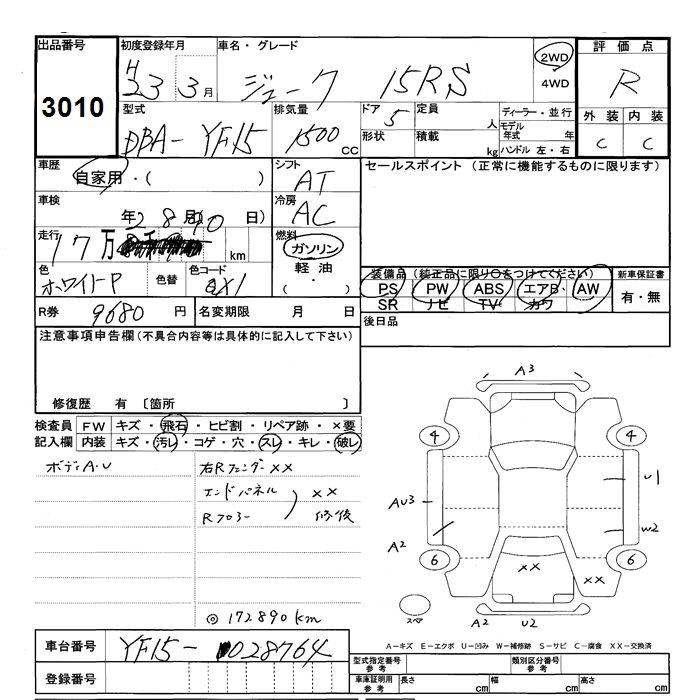 出品番号
3010
初度登録年月
H23 3月
車名・グレード
ジューク 15RS
2WD
4WD
評価点
R
外装 内装
C C
型式
DBA-YF15
排気量
1500 CC
ドア 5
形状
定員 人
積載 kg
ディーラー・並行
モデル年式 年
ハンドル 左・右
車歴
自家用・( )
シフト
AT
セールスポイント (正常に機能するものに限ります)
車検
年 28月(10日)
冷房
AC
走行
17万 km
燃料
ガソリン
軽油
( ・ )
色
ホワイトP
色替
色コード
QX1
装備品 (純正品に限り○をつけてください)
PS PW ABS エアB AW
SR ナビ TV カワ
新車保証書
有・無
R券 9680 円
名変期限 月 日
後日品
注意事項申告欄(不具合内容等は具体的に記入して下さい)
修復歴 有 〔箇所 〕
検査員記入欄
FW キズ・飛石・ヒビ割・リペア跡・×要
内装 キズ・汚レ・コゲ・穴・スレ・キレ・破レ
ボディA・U
右Rフェンダー××
エンドパネル
Rフロアー
××
修復
◎172890km
A3
4
4
U1
AU3
W2
A2
6
6
××
××
スペア
A2
U2
A−キズ E−エクボ U−凹み W−補修跡 S−サビ C−腐食 XX−交換済
車台番号
YF15-028764
登録番号
型式指定番号 参考
類別区分番号 参考
車庫証明用 参考
長さ cm
幅 cm
高さ cm